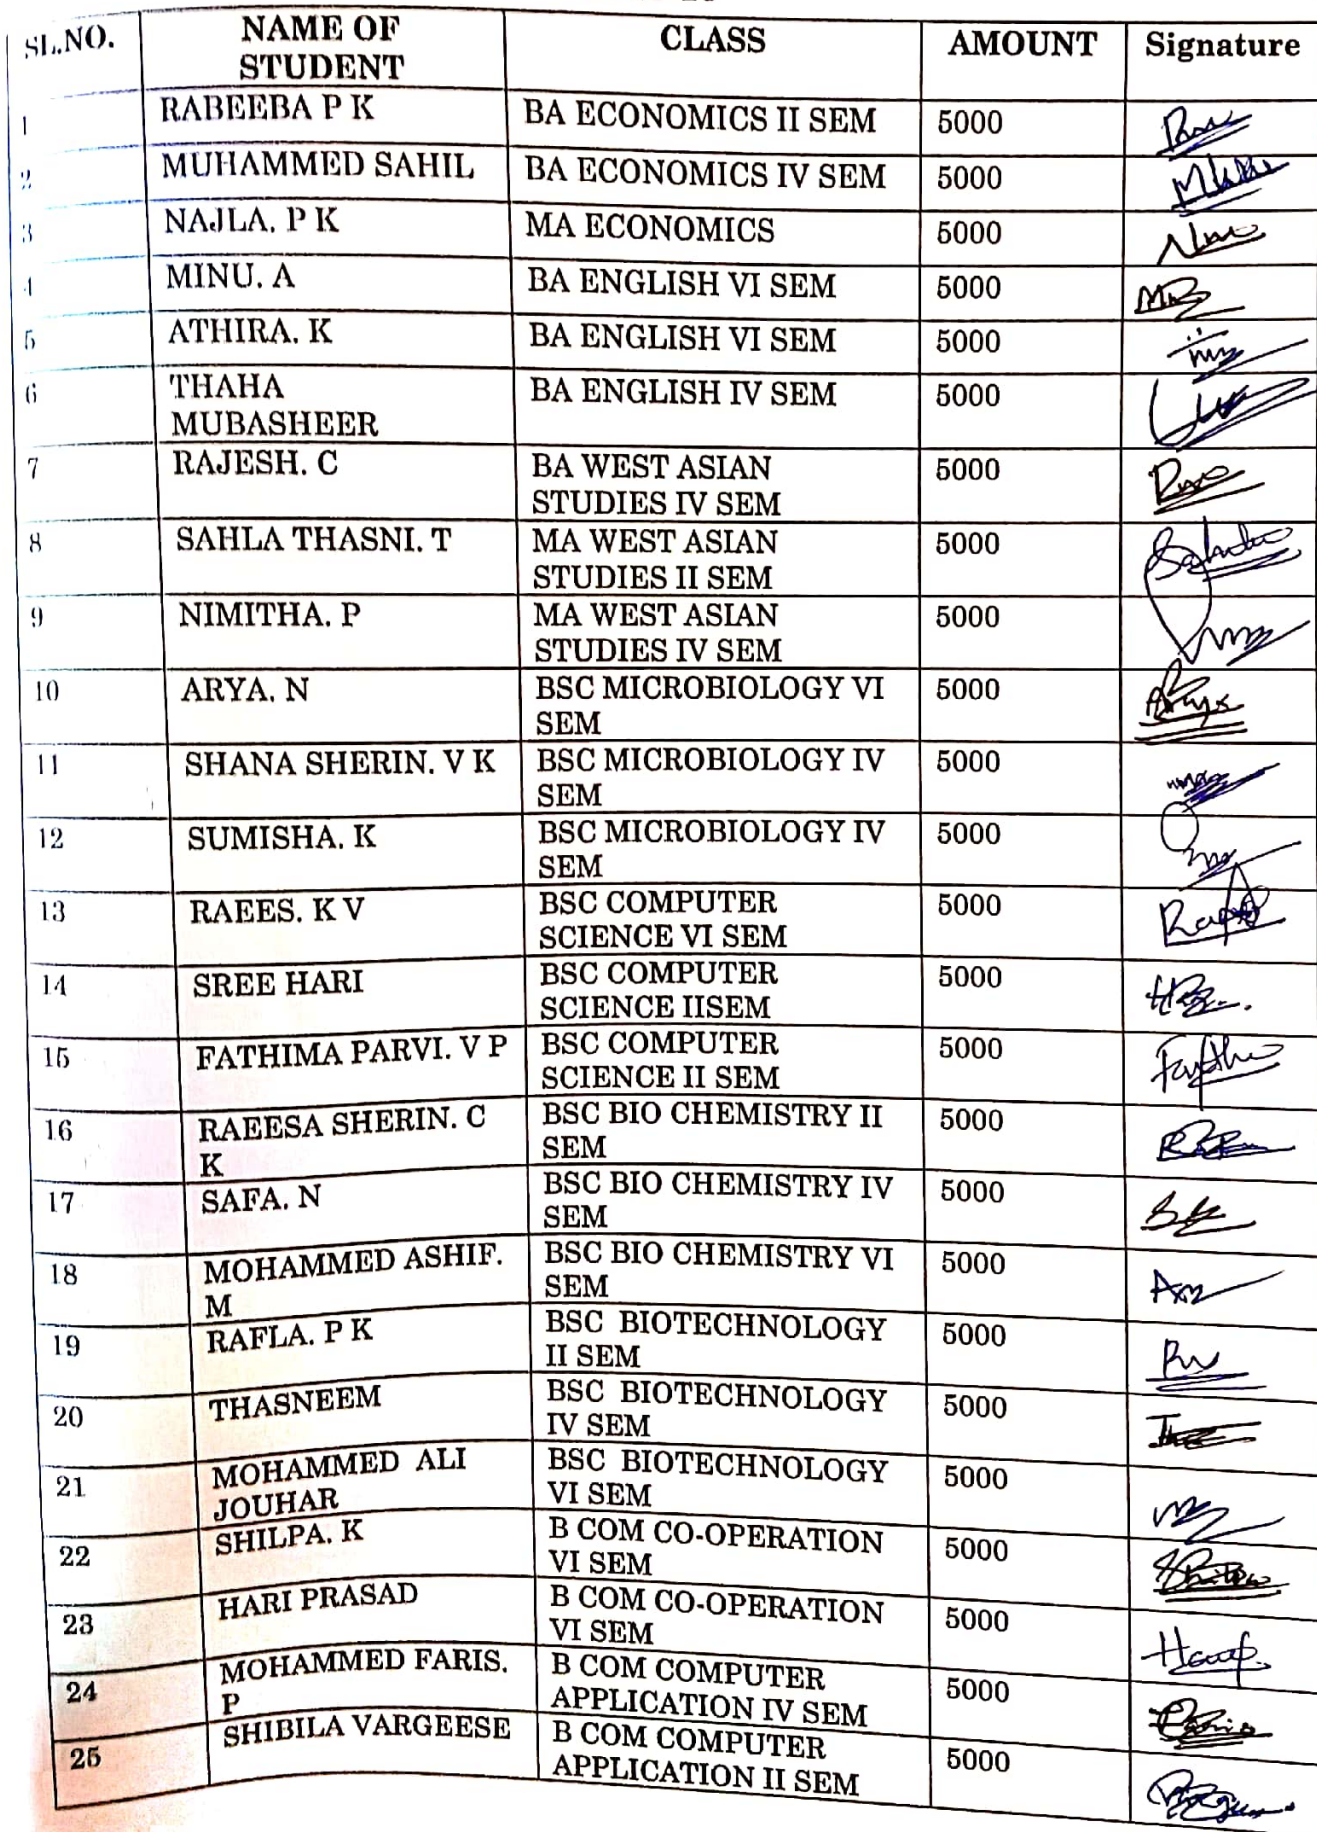 SL.NO. NAME OF STUDENT CLASS AMOUNT Signature
1 RABEEBA P K BA ECONOMICS II SEM 5000
2 MUHAMMED SAHIL BA ECONOMICS IV SEM 5000
3 NAJLA. P K MA ECONOMICS 5000
4 MINU. A BA ENGLISH VI SEM 5000
5 ATHIRA. K BA ENGLISH VI SEM 5000
6 THAHA BA ENGLISH IV SEM 5000
MUBASHEER
7 RAJESH. C BA WEST ASIAN 5000
STUDIES IV SEM
8 SAHLA THASNI. T MA WEST ASIAN 5000
STUDIES II SEM
9 NIMITHA. P MA WEST ASIAN 5000
STUDIES IV SEM
10 ARYA. N BSC MICROBIOLOGY VI 5000
SEM
11 SHANA SHERIN. V K BSC MICROBIOLOGY IV 5000
SEM
12 SUMISHA. K BSC MICROBIOLOGY IV 5000
SEM
13 RAEES. K V BSC COMPUTER 5000
SCIENCE VI SEM
14 SREE HARI BSC COMPUTER 5000
SCIENCE IISEM
15 FATHIMA PARVI. V P BSC COMPUTER 5000
SCIENCE II SEM
16 RAEESA SHERIN. C BSC BIO CHEMISTRY II 5000
K SEM
17 SAFA. N BSC BIO CHEMISTRY IV 5000
SEM
18 MOHAMMED ASHIF. BSC BIO CHEMISTRY VI 5000
M SEM
19 RAFLA. P K BSC BIOTECHNOLOGY 5000
II SEM
20 THASNEEM BSC BIOTECHNOLOGY 5000
IV SEM
21 MOHAMMED ALI BSC BIOTECHNOLOGY 5000
JOUHAR VI SEM
22 SHILPA. K B COM CO-OPERATION 5000
VI SEM
23 HARI PRASAD B COM CO-OPERATION 5000
VI SEM
24 MOHAMMED FARIS. B COM COMPUTER 5000
P APPLICATION IV SEM
25 SHIBILA VARGEESE B COM COMPUTER 5000
APPLICATION II SEM